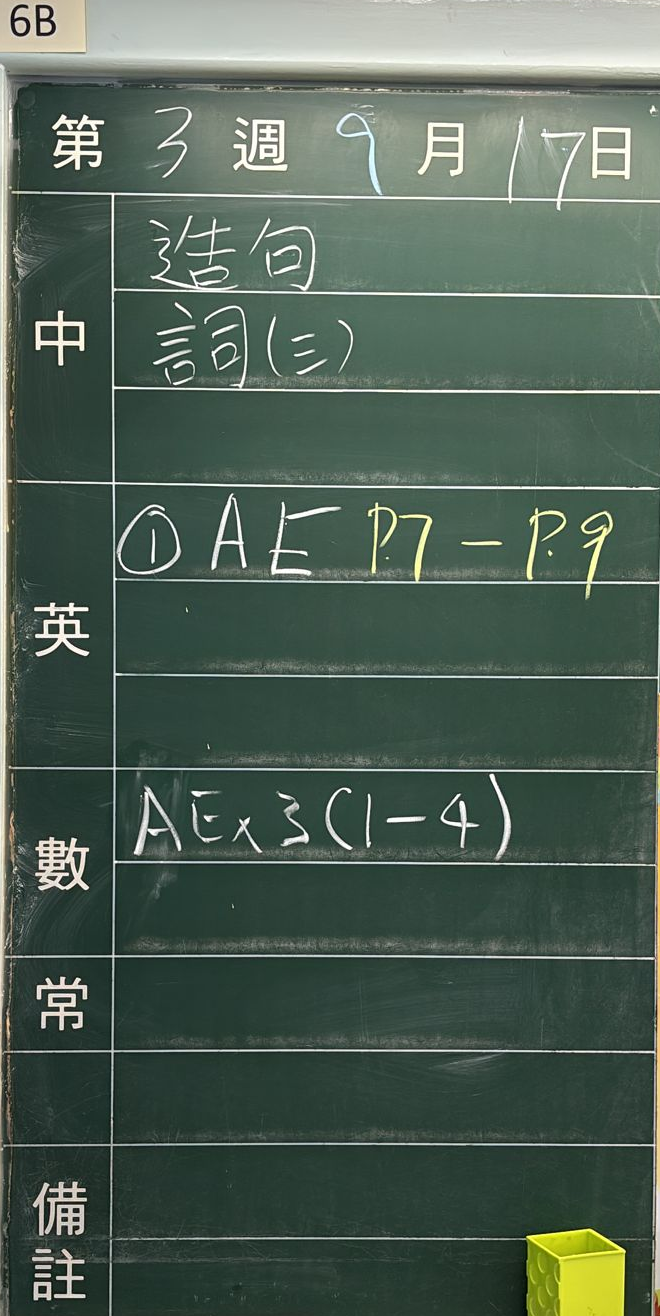 6B
第 3 週 9 月 17 日
中
造句
詞(三)
英
① AE P.7 - P.9
數
AEx3(1-4)
常
備註